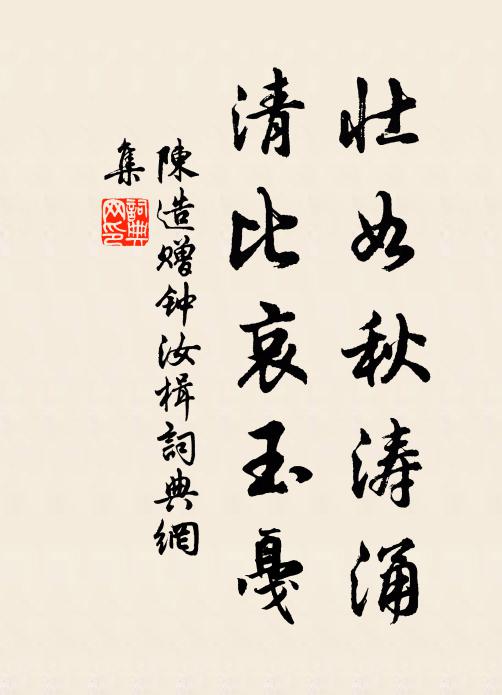 壮如秋涛涌
清比哀玉戛
陳造贈钟汝楫詞典網
集
詞典网印